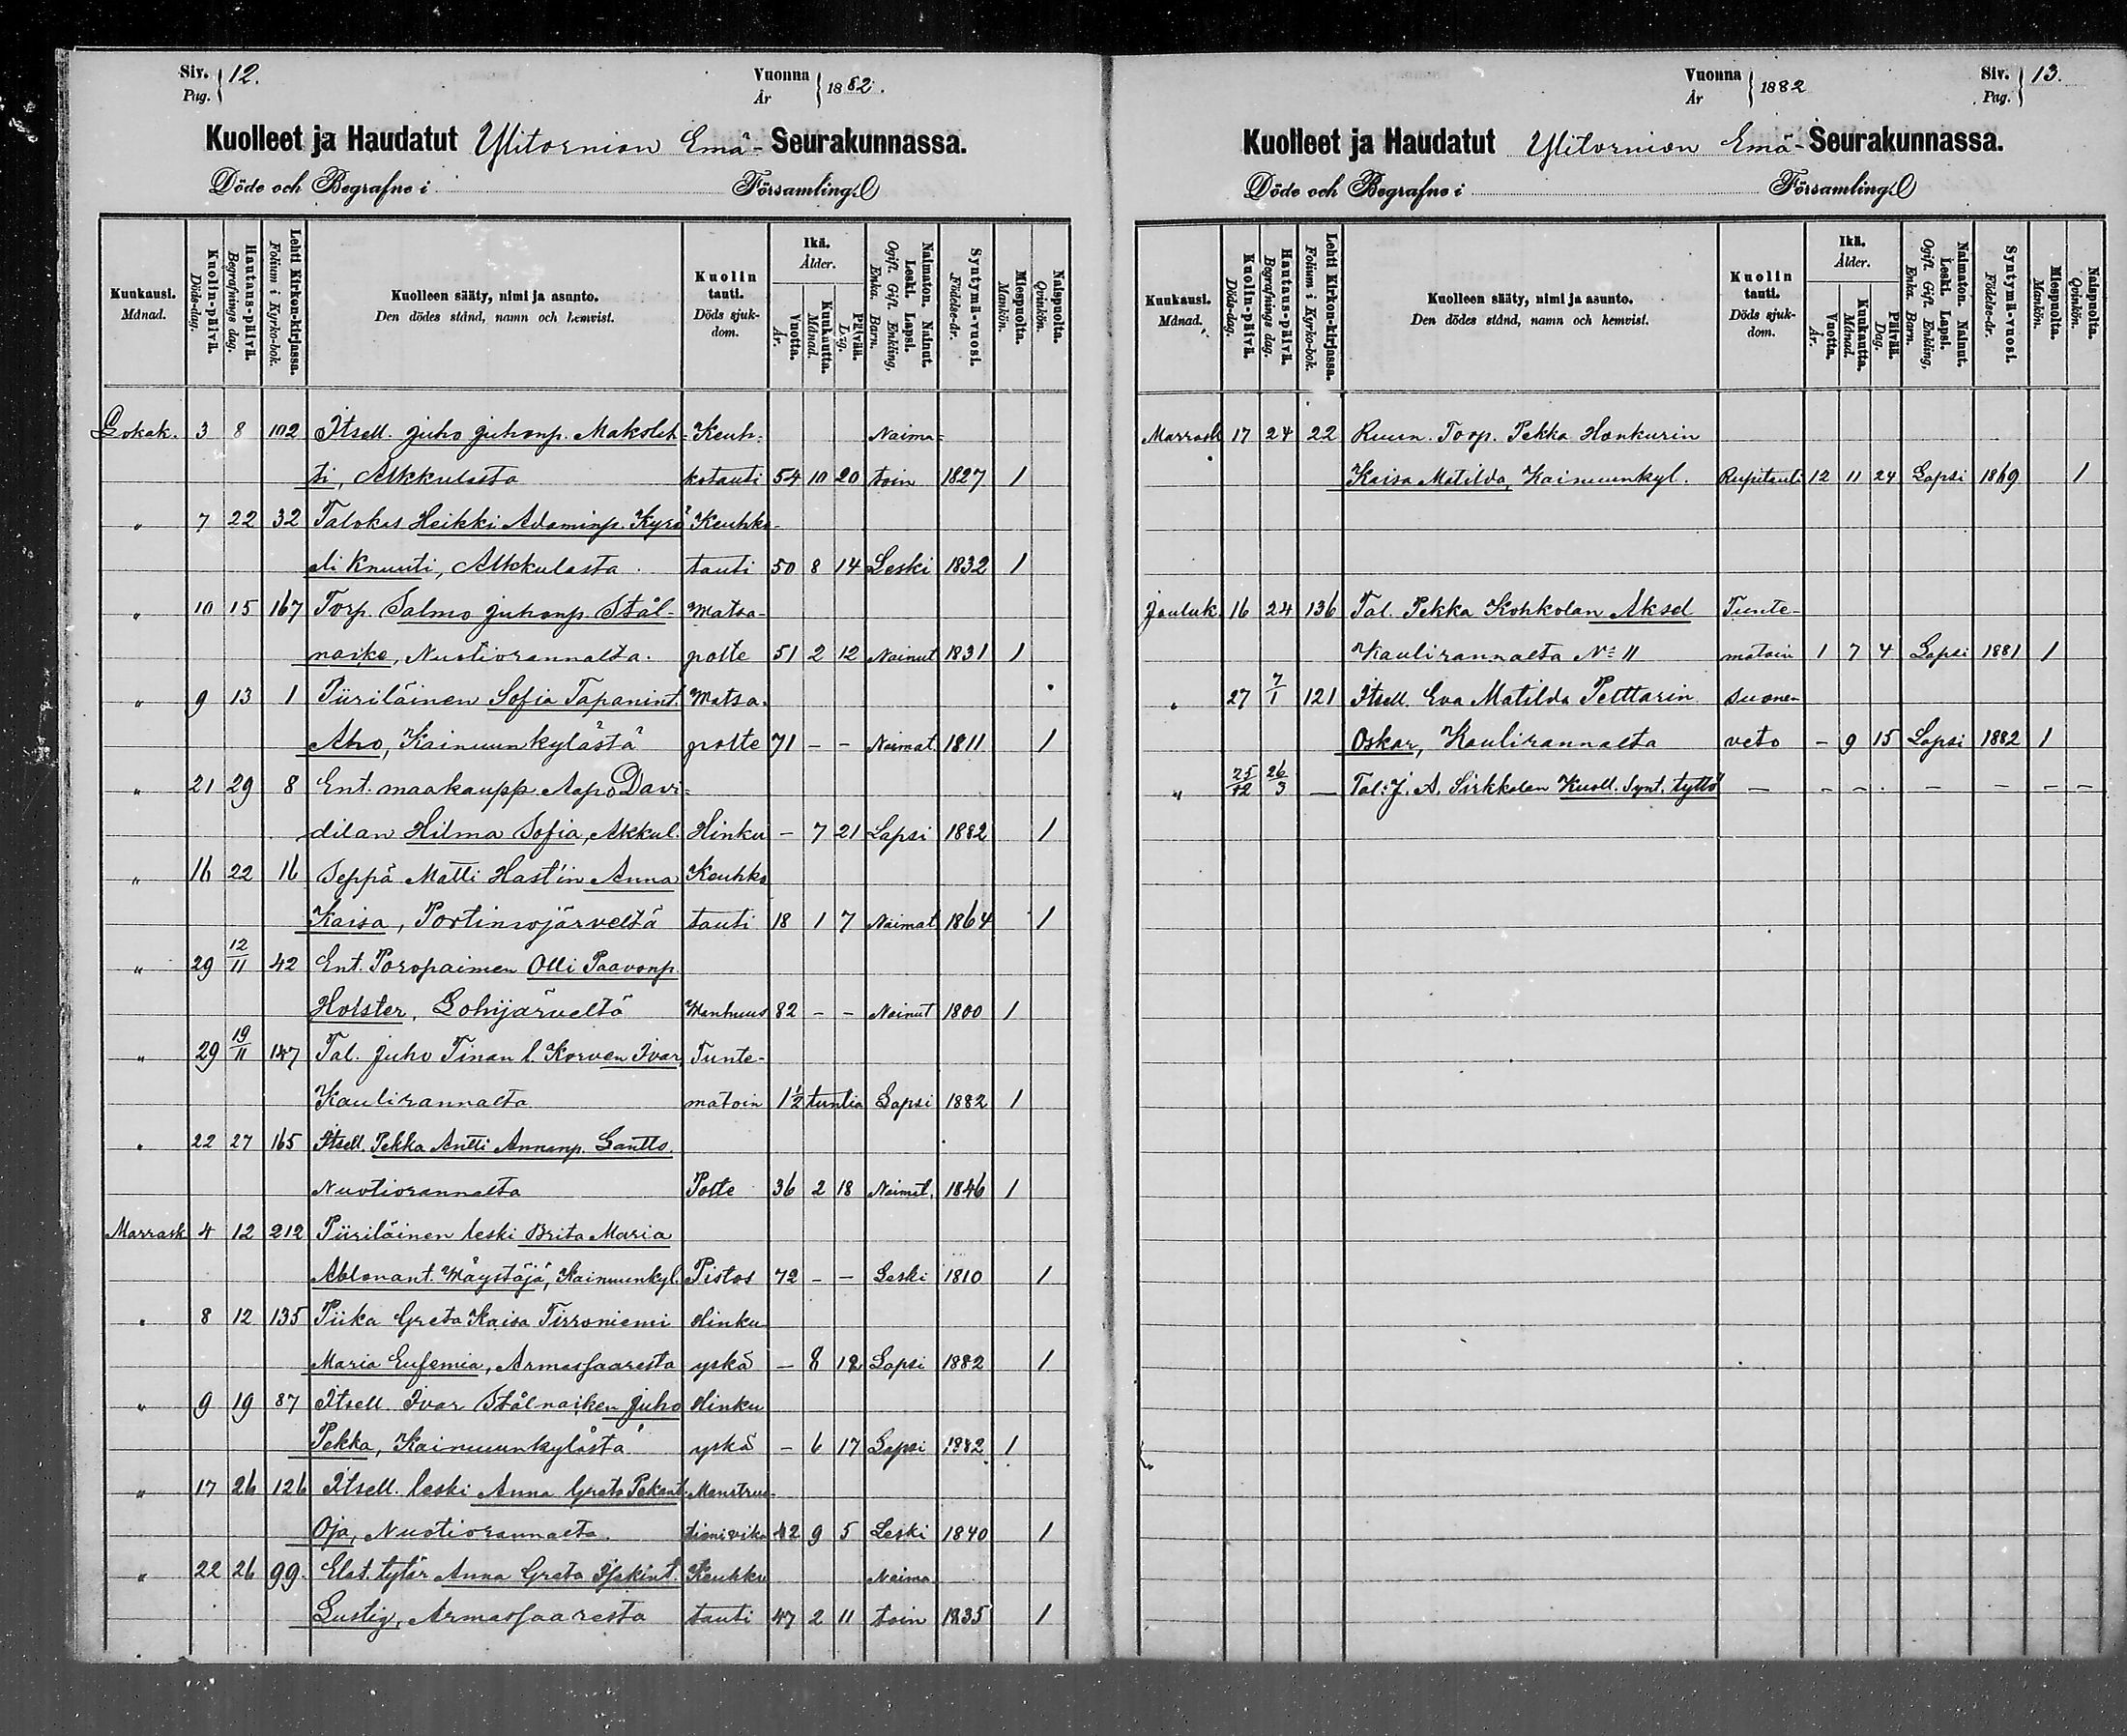 Siv. Pag. 12.
Vuonna År 1882.
Kuolleet ja Haudatut Ylitornion Emä- Seurakunnassa.
Döde och Begrafne i Församling.
Kuukausi. Månad.
Kuolin-päivä. Döds-dag.
Hautaus-päivä. Begrafnings dag.
Lehti Kirkon-kirjassa. Folium i Kyrko-bok.
Kuolleen sääty, nimi ja asunto.
Den dödes stånd, namn och hemvist.
Kuolin tauti. Döds sjuk-dom.
Ikä. Ålder.
Vuotta. År.
Kuukautta. Månad.
Päivää. Dag.
Naimaton. Nainut. Leski. Lapsi. Ogift. Gift. Enkling, Enka. Barn.
Syntymä-vuosi. Födelse-år.
Miespuolta. Mankön.
Naispuolta. Qvinkön.
Lokak. 3 8 102 Itsell. Juho Juhonp. Maksleh- Keuh- Naima-
ti, Alkkulasta kotauti 54 10 20 toin 1827 1
" 7 22 32 Talokas Heikki Adaminp. Kyrö Keuhko-
eli Knuuti, Alkkulasta. tauti 50 8 14 Leski 1832 1
" 10 15 167 Torp. Salmo Juhonp. Stål- Matsa-
naike, Nuotiorannalta. polte 51 2 12 Nainut 1831 1
" 9 13 1 Piiriläinen Sofia Tapanint. Matsa-
Aho, Kainuunkylästä polte 71 - - Naimat 1811 1
" 21 29 8 Ent. maakaupp. Aapo Davi-
dilan Hilma Sofia, Alkkul. Hinku - 7 21 Lapsi 1882 1
" 16 22 16 Seppä Matti Hast'in Anna Keuhko
Kaisa, Portimojärveltä tauti 18 1 7 Naimat 1864 1
" 29 12/11 42 Ent. Poropaimen Olli Paavonp.
Holster, Lohijärveltä Wanhuus 82 - - Nainut 1800 1
" 29 19/11 147 Tal. Juho Tinan l. Korven Ivar, Tunte-
Kaulirannalta matoin 1 1/2 tuntia Lapsi 1882 1
" 22 27 165 Itsell. Pekka Antti Annanp. Lantto.
Nuotiorannalta Polte 36 2 18 Naimat. 1846 1
Marrask 4 12 212 Piiriläinen leski Brita Maria
Ablonant. Mäystäjä, Kainuunkyl. Pistos 72 - - Leski 1810 1
" 8 12 135 Piika Greta Kaisa Tirroniemi Hinku
Maria Eufemia, Armassaaresta yskä - 8 12 Lapsi 1882 1
" 9 19 87 Itsell. Ivar Stålnaiken Juho Hinku
Pekka, Kainuunkylästä yskä - 6 17 Lapsi 1882 1
" 17 26 126 Itsell. leski Anna Greta Pekant. Menstrua-
Oja, Nuotiorannalta. tionivika 42 9 5 Leski 1840 1
" 22 26 99. Elat. tytär Anna Greta Isakint. Keuhko Naima
Lustig, Armassaaresta tauti 47 2 11 toin 1835 1
Vuonna År 1882
Siv. Pag. 13.
Kuolleet ja Haudatut Ylitornion Emä- Seurakunnassa.
Döde och Begrafne i Församling.
Kuukausi. Månad.
Kuolin-päivä. Döds-dag.
Hautaus-päivä. Begrafnings dag.
Lehti Kirkon-kirjassa. Folium i Kyrko-bok.
Kuolleen sääty, nimi ja asunto.
Den dödes stånd, namn och hemvist.
Kuolin tauti. Döds sjuk-dom.
Ikä. Ålder.
Vuotta. År.
Kuukautta. Månad.
Päivää. Dag.
Naimaton. Nainut. Leski. Lapsi. Ogift. Gift. Enkling, Enka. Barn.
Syntymä-vuosi. Födelse-år.
Miespuolta. Mankön.
Naispuolta. Qvinkön.
Marrask 17 24 22 Ruun. Torp. Pekka Hankurin
Kaisa Matilda, Kainuunkyl. Rupitauti 12 11 24 Lapsi 1869 1
Jouluk 16 24 136 Tal. Pekka Kohkolan Aksel Tunte-
Kaulirannalta No 11 matoin 1 7 4 Lapsi 1881 1
" 27 7/1 121 Itsell. Eva Matilda Pelttarin suonen
Oskar, Kaulirannalta veto - 9 15 Lapsi 1882 1
" 25/12 26/3 — Tal. J. A. Sirkkalan Kuoll. Synt. tyttö — - - - — — - -